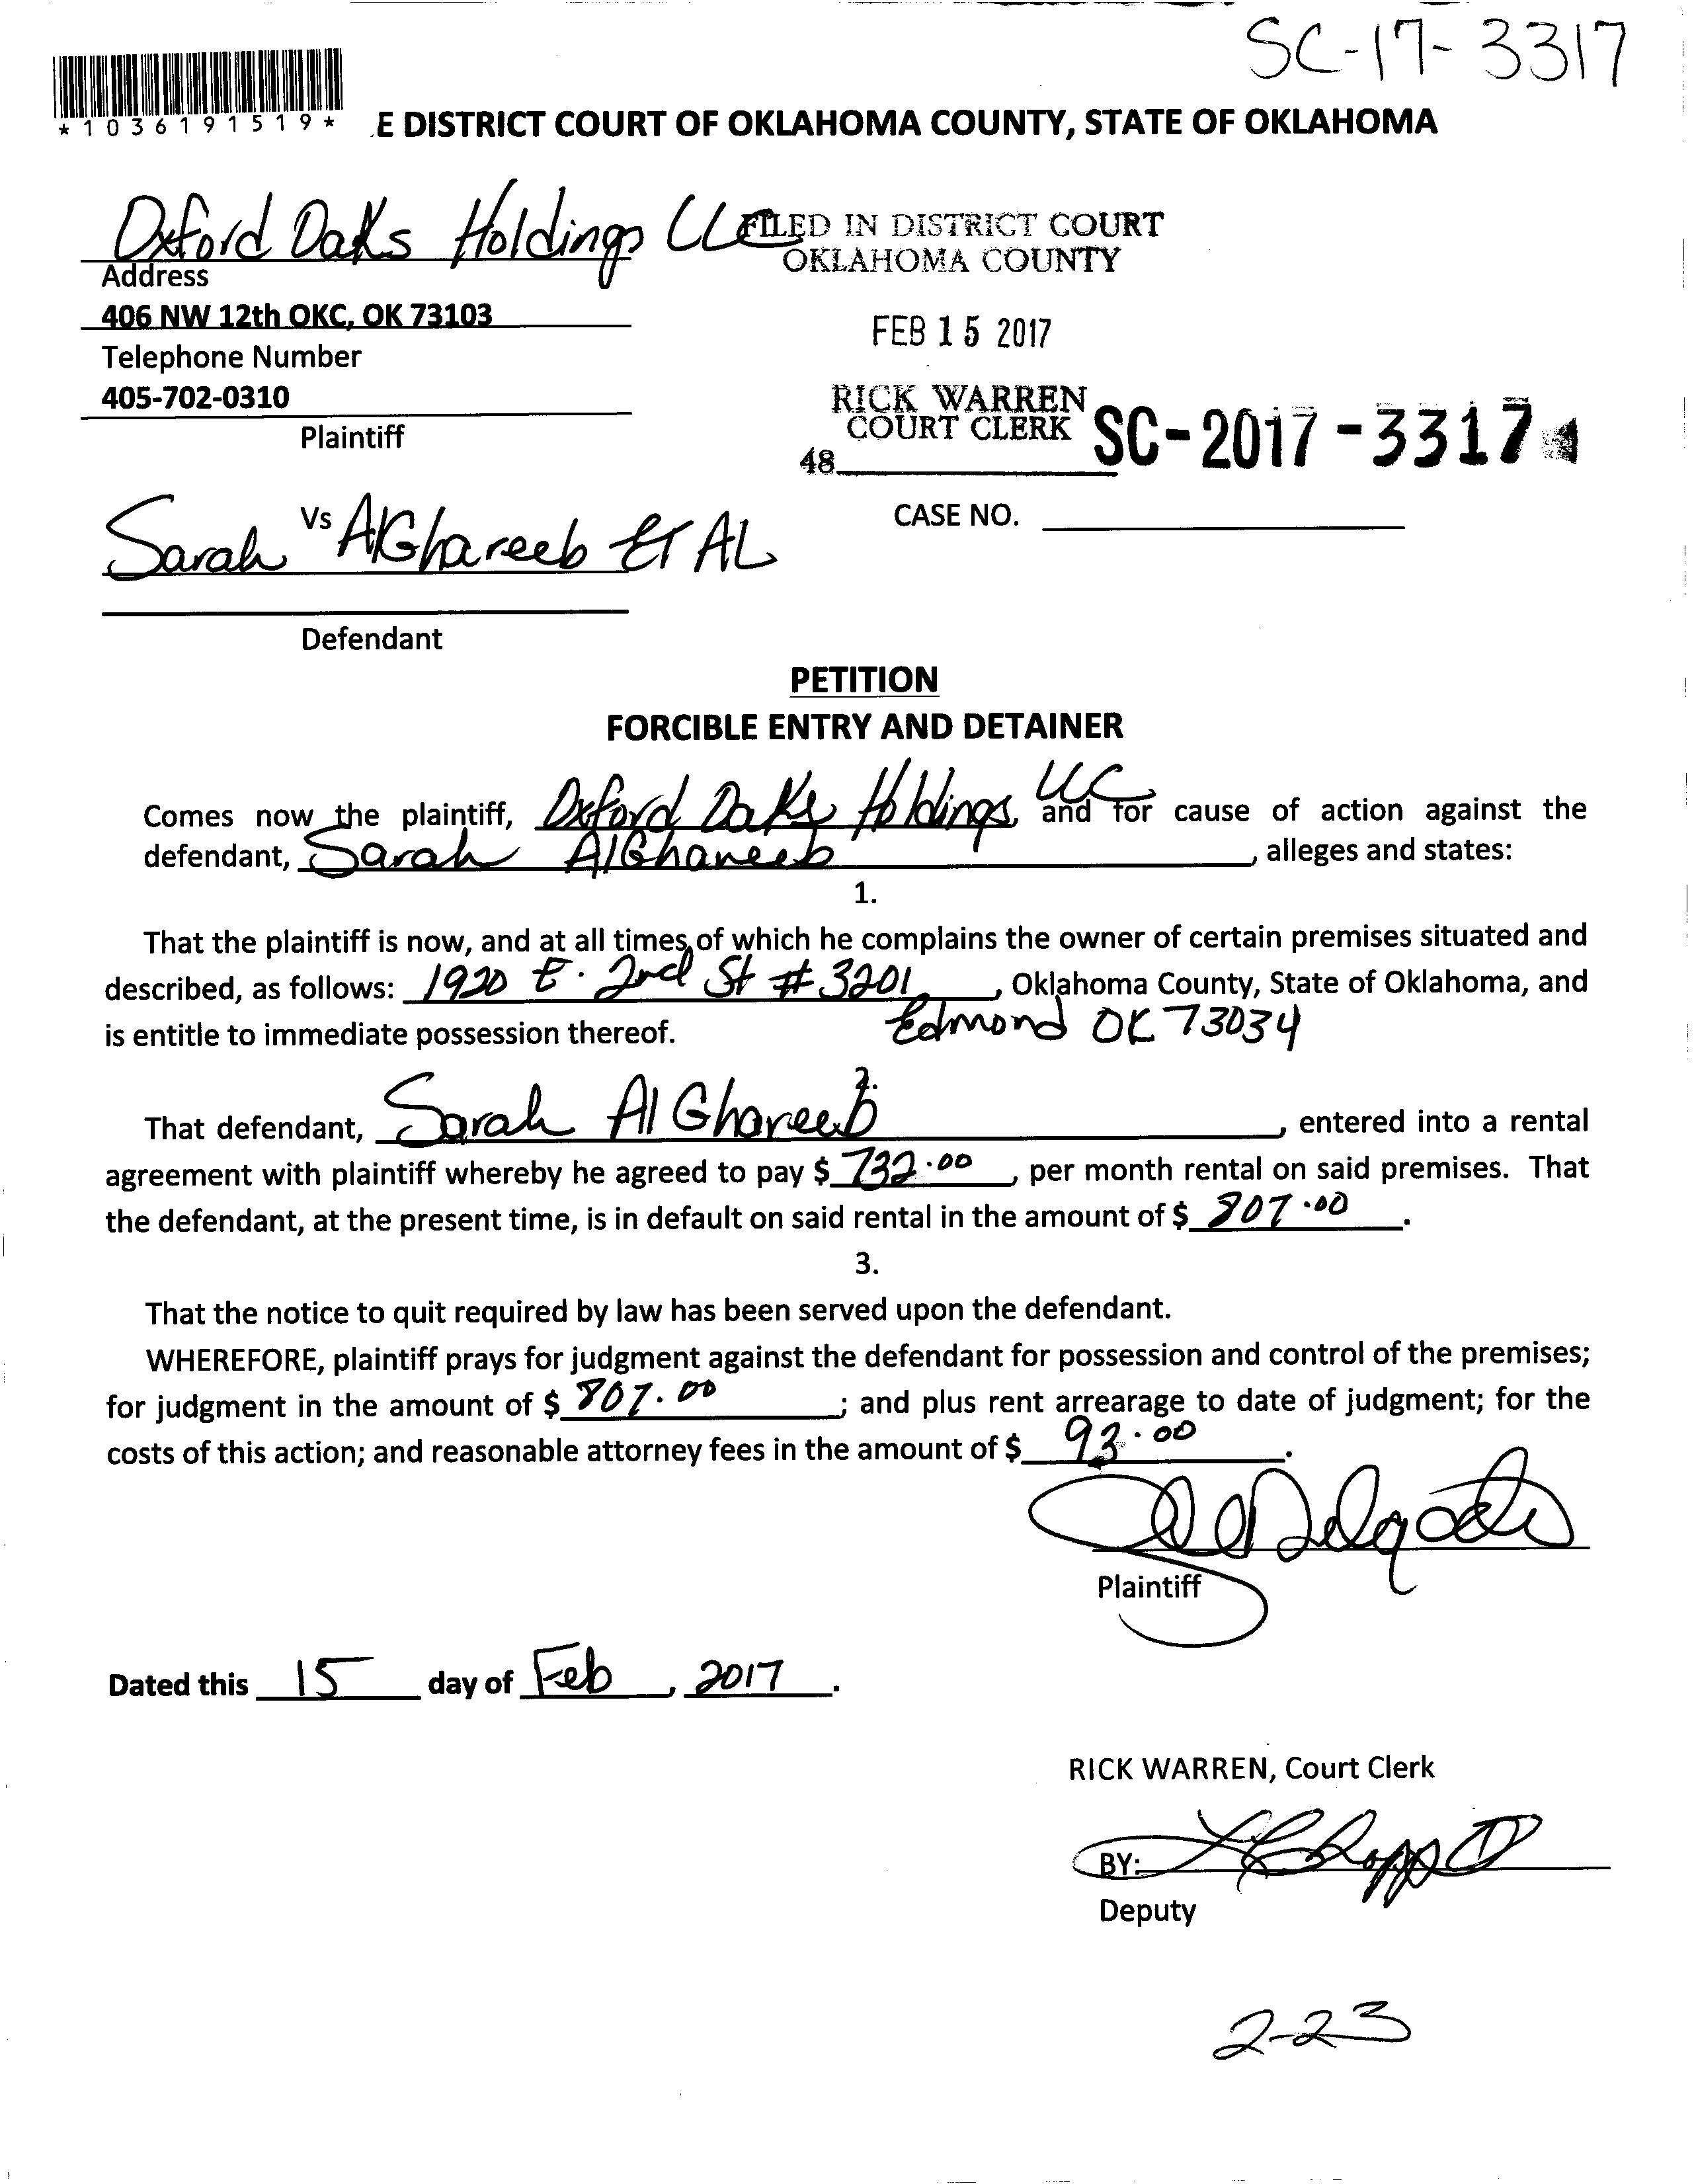 SC-17-3317
*1036191519*
E DISTRICT COURT OF OKLAHOMA COUNTY, STATE OF OKLAHOMA
Oxford Oaks Holdings LLC
FILED IN DISTRICT COURT
OKLAHOMA COUNTY
Address
406 NW 12th OKC, OK 73103
FEB 15 2017
Telephone Number
405-702-0310
RICK WARREN
COURT CLERK
SC-2017-3317
Plaintiff
48
Vs
CASE NO.
Sarah AlGhareeb ET AL
Defendant
PETITION
FORCIBLE ENTRY AND DETAINER
Comes now the plaintiff, Oxford Oaks Holdings, LLC and for cause of action against the
defendant, Sarah AlGhareeb, alleges and states:
1.
That the plaintiff is now, and at all times of which he complains the owner of certain premises situated and
described, as follows: 1920 E. 2nd St # 3201, Oklahoma County, State of Oklahoma, and
is entitle to immediate possession thereof. Edmond OK 73034
2.
That defendant, Sarah AlGhareeb, entered into a rental
agreement with plaintiff whereby he agreed to pay $ 732.00, per month rental on said premises. That
the defendant, at the present time, is in default on said rental in the amount of $ 807.00.
3.
That the notice to quit required by law has been served upon the defendant.
WHEREFORE, plaintiff prays for judgment against the defendant for possession and control of the premises;
for judgment in the amount of $ 807.00; and plus rent arrearage to date of judgment; for the
costs of this action; and reasonable attorney fees in the amount of $ 93.00.
Plaintiff
Dated this 15 day of Feb, 2017.
RICK WARREN, Court Clerk
BY:
Deputy
2-23